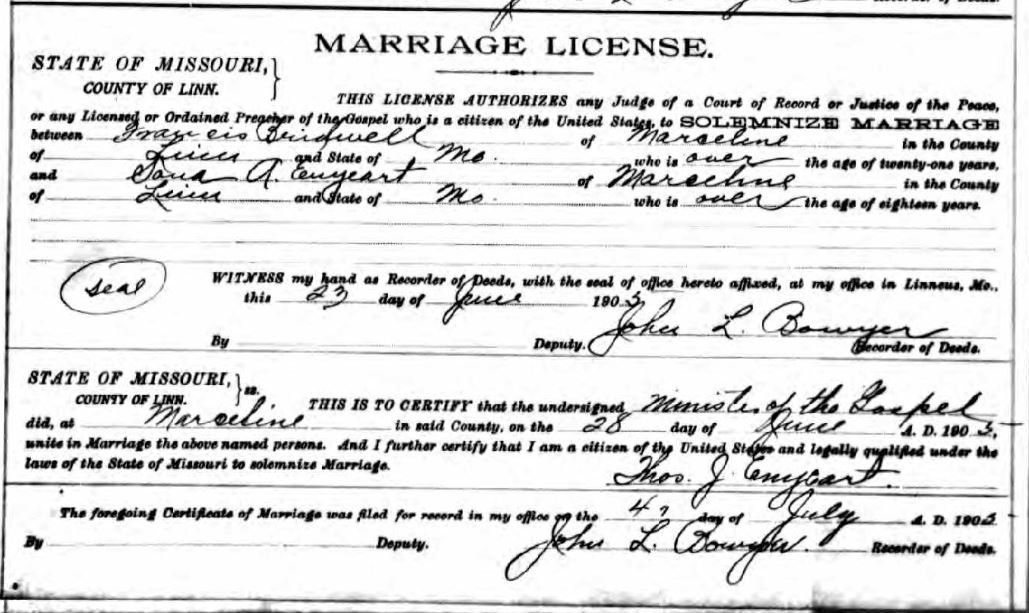 MARRIAGE LICENSE.
STATE OF MISSOURI,
COUNTY OF LINN.
THIS LICENSE AUTHORIZES any Judge of a Court of Record or Justice of the Peace,
or any Licensed or Ordained Preacher of the Gospel who is a citizen of the United States, to SOLEMNIZE MARRIAGE
between Francis Bridwell of Marceline in the County
of Linn and State of Mo. who is over the age of twenty-one years,
and A. Enyeart of Marceline in the County
of Linn and State of Mo. who is over the age of eighteen years.
seal
WITNESS my hand as Recorder of Deeds, with the seal of office hereto affixed, at my office in Linneus, Mo.,
this 23 day of June 1903
John L. Bowyer
By Deputy. Recorder of Deeds.
STATE OF MISSOURI,
COUNTY OF LINN. ss.
THIS IS TO CERTIFY that the undersigned Minister of the Gospel
did, at Marceline in said County, on the 28 day of June A. D. 1903,
unite in Marriage the above named persons. And I further certify that I am a citizen of the United States and legally qualified under the
laws of the State of Missouri to solemnize Marriage.
Thos. J. Enyeart.
The foregoing Certificate of Marriage was filed for record in my office on the 4 day of July A. D. 1903
By Deputy. John L. Bowyer. Recorder of Deeds.